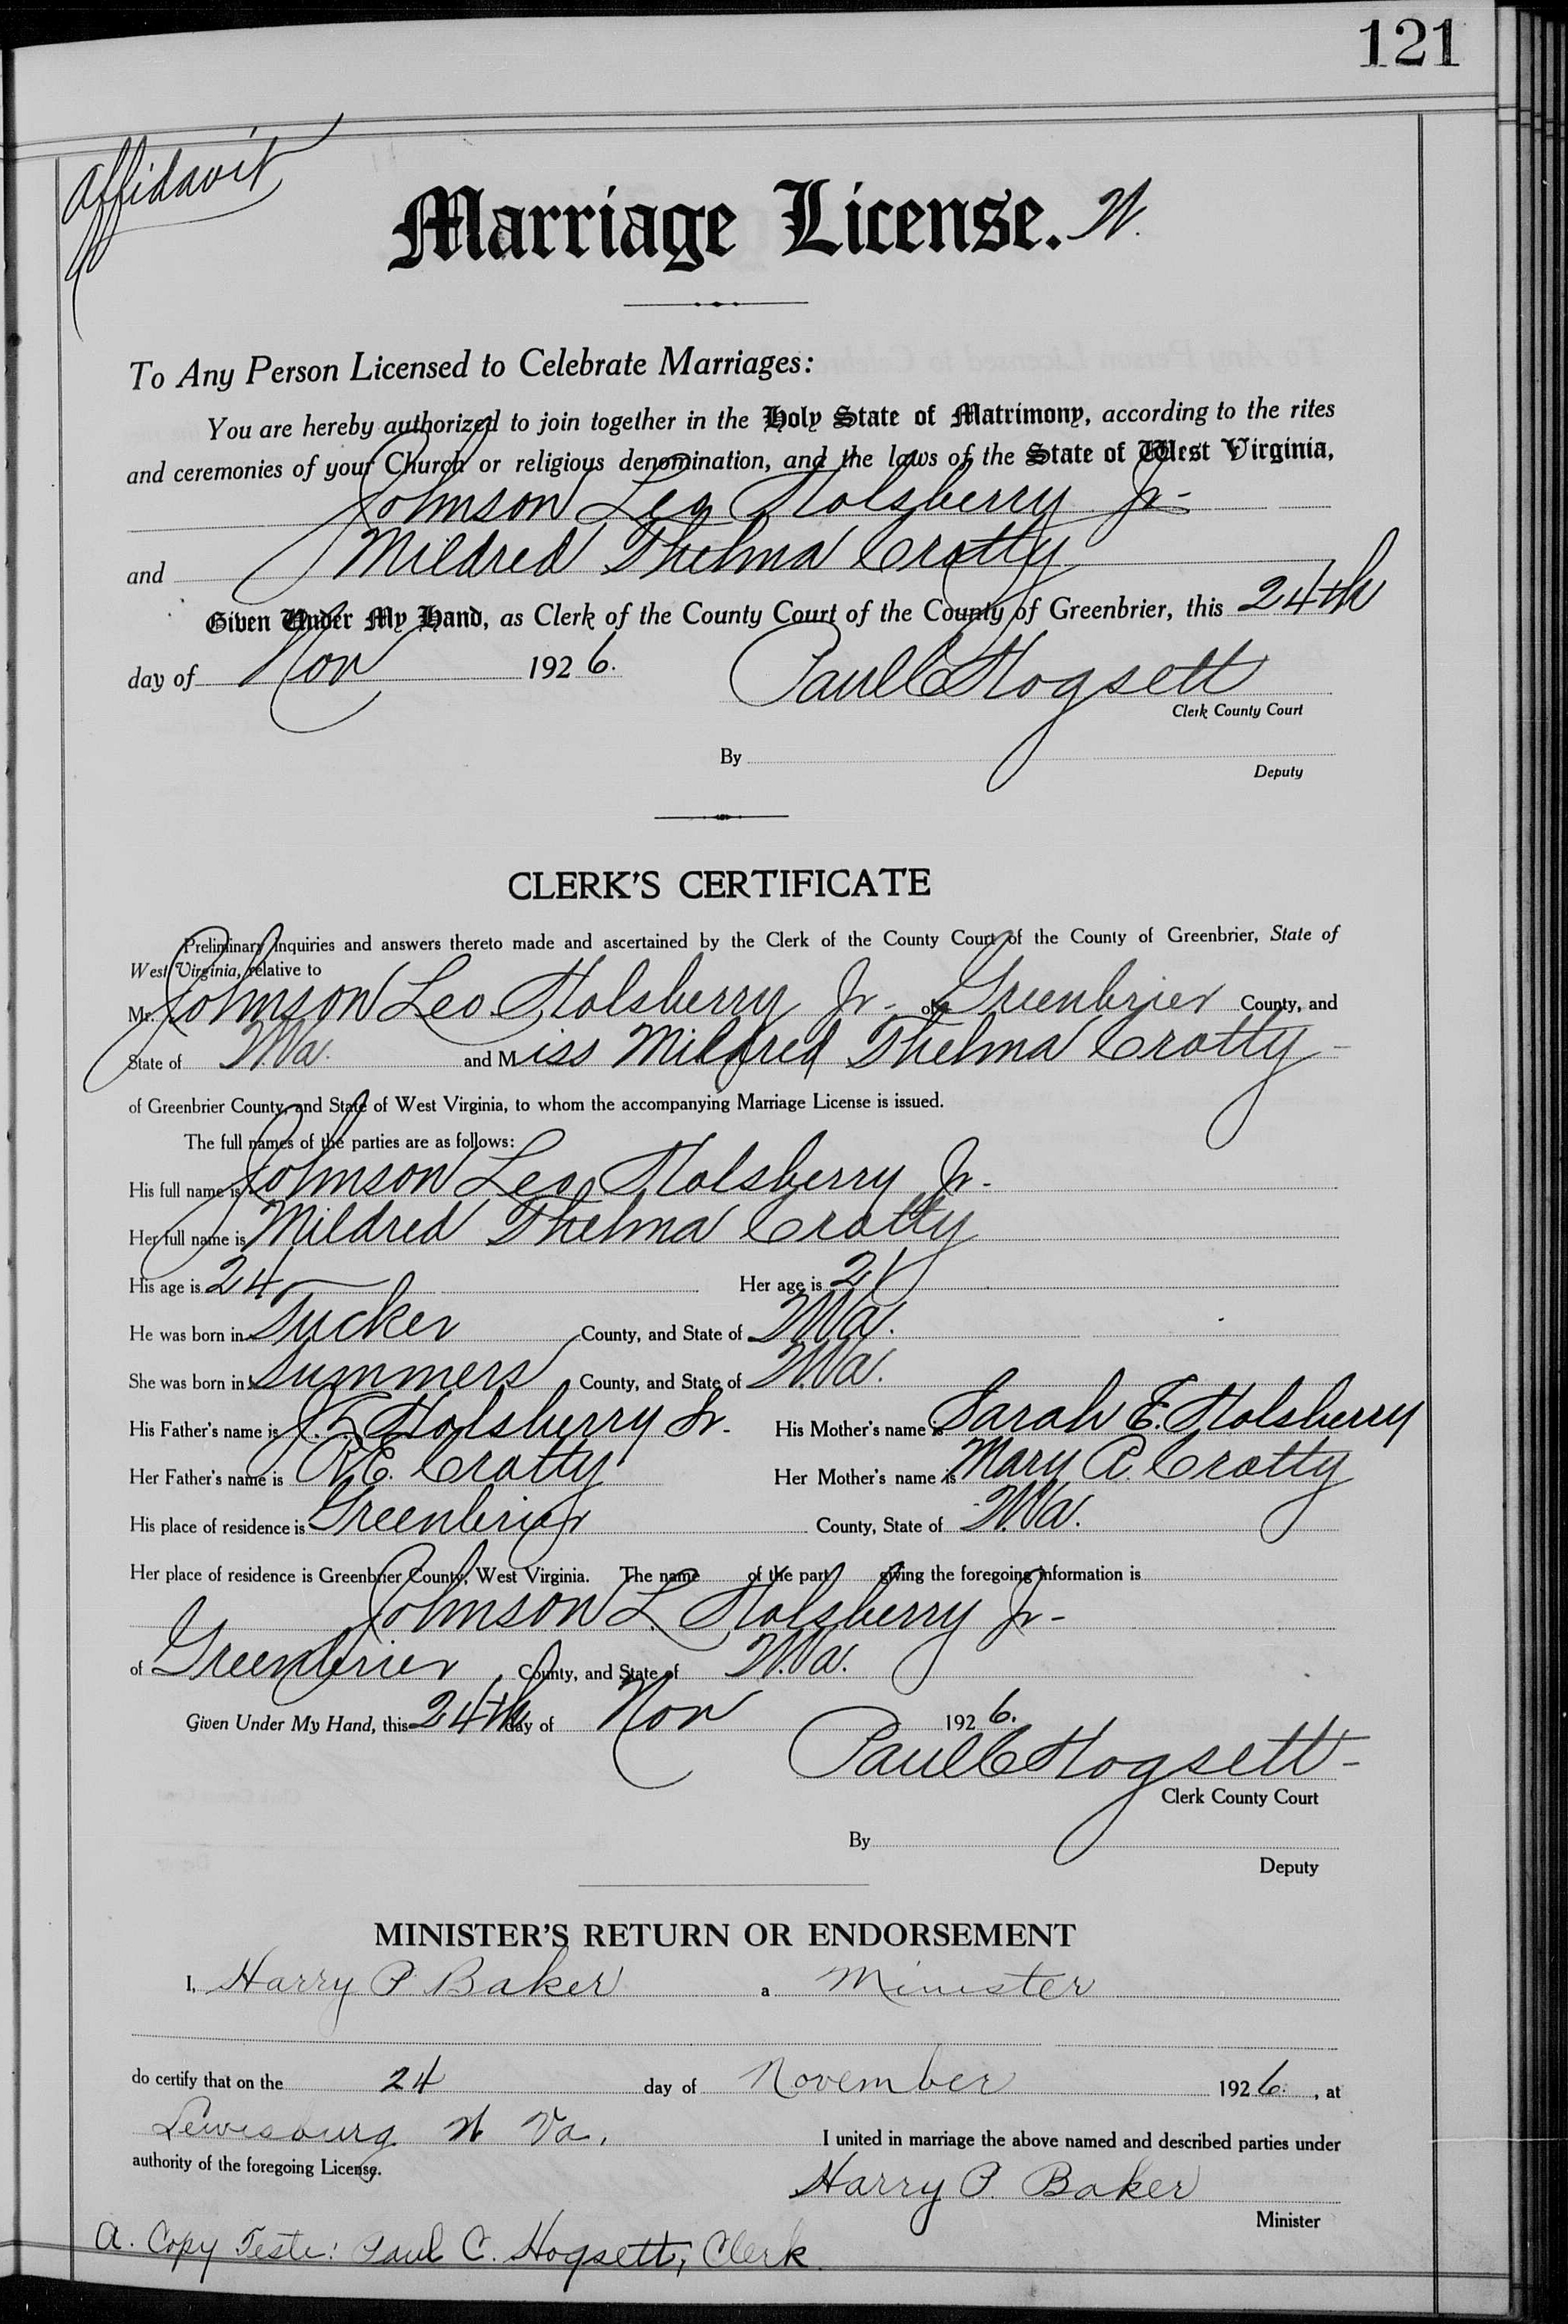 121
Affidavit
Marriage License. W.
To Any Person Licensed to Celebrate Marriages:
You are hereby authorized to join together in the Holy State of Matrimony, according to the rites
and ceremonies of your Church or religious denomination, and the laws of the State of West Virginia,
Johnson Leo Holsberry Jr-
and Mildred Thelma Crotty
Given Under My Hand, as Clerk of the County Court of the County of Greenbrier, this 24th
day of Nov 1926. Paul C Hogsett
Clerk County Court
By
Deputy
CLERK'S CERTIFICATE
Preliminary inquiries and answers thereto made and ascertained by the Clerk of the County Court of the County of Greenbrier, State of
West Virginia, relative to
Mr. Johnson Leo Holsberry Jr- of Greenbrier County, and
State of W Va. and Miss Mildred Thelma Crotty-
of Greenbrier County, and State of West Virginia, to whom the accompanying Marriage License is issued.
The full names of the parties are as follows:
His full name is Johnson Leo Holsberry Jr-
Her full name is Mildred Thelma Crotty
His age is 24 Her age is 21
He was born in Tucker County, and State of W Va.
She was born in Summers County, and State of W.Va.
His Father's name is J. L Holsberry Sr- His Mother's name is Sarah E. Holsberry
Her Father's name is R.E. Crotty Her Mother's name is Mary A. Crotty
His place of residence is Greenbrier County, State of W.Va.
Her place of residence is Greenbrier County, West Virginia. The name of the part giving the foregoing information is
Johnson L. Holsberry Jr-
of Greenbrier County, and State of W.Va.
Given Under My Hand, this 24th day of Nov 1926.
Paul C Hogsett-
Clerk County Court
By
Deputy
MINISTER'S RETURN OR ENDORSEMENT
I, Harry P. Baker a Minister
do certify that on the 24 day of November 1926. , at
Lewisburg W Va. I united in marriage the above named and described parties under
authority of the foregoing License.
Harry P. Baker
Minister
A. Copy Teste: Paul C. Hogsett, Clerk.